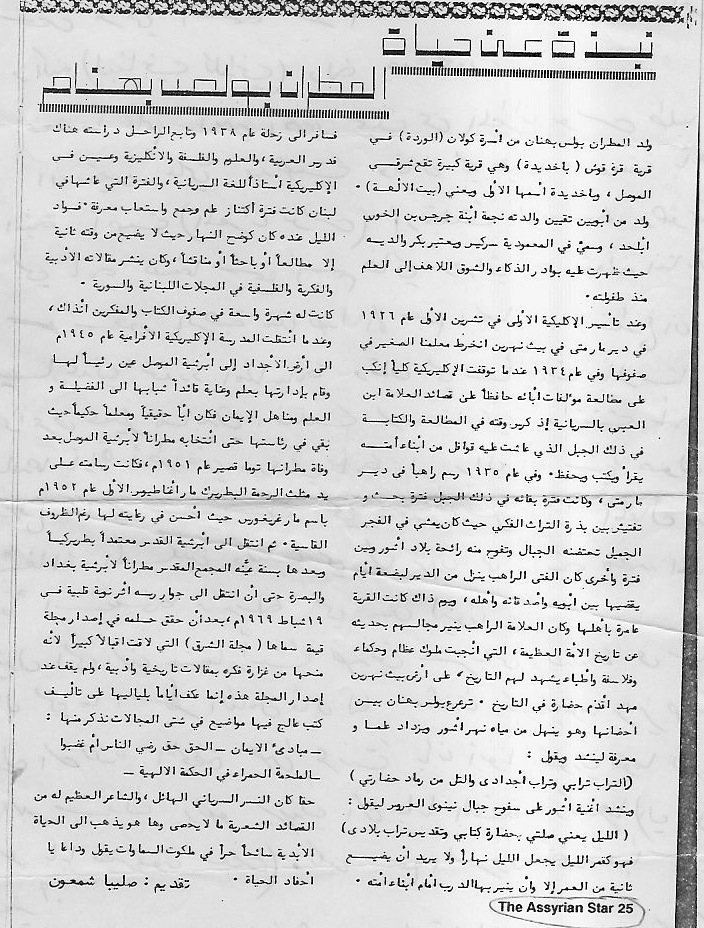 نبذة عن حياة
المطران بولص بهنام
ولد المطران بولس بهنان من اُسرة كولان (الوردة) في
قرية قرة قوش (باخديدة) وهي قرية كبيرة تقع شرقي
الموصل ، وباخديدة اسمها الأولى ويعني (بيت الالهة) ٠
ولد من أبويين تقيين والدته نجمة اُبنة جرجس بن الخوري
ايلحد ، وسميّ في المعمودية سركيس ويعتبر بكر والديه
حيث ظهرت عليه بوادر الذكاء والشوق اللاهف إلى العلم
منذ طفولته ٠
وعند تأسيس الإكليكية الأولى في تشرين الأول عام ١٩٢٦
في دير مار متى في بيث نهرين انخرط معلمنا الصغير في
صفوفها وفي عام ١٩٣٤ عندما توقفت الإكليريكية كلياً إنكب
على مطالعة مؤلفات آبائه حافظاً على قصائد العلامة ابن
العبري بالسريانية إذ كرس وقته في المطالعة والكتابة
في ذلك الجبل الذي عاشت عليه قوافل من أبناء أمته
يقرأ ويكتب ويحفظ ٠ وفي عام ١٩٣٥ رسم راهباً في دير
مار متى ، وكانت فترة بقائه في ذلك الجبل فترة بحث و
تفتيش بين بذرة التراث الفكري حيث كان يمشي في الفجر
الجميل تحتضنه الجبال وتفوح منه رائحة بلاد اشور وبين
فترة وأخرى كان الفتى الراهب ينزل من الدير لبضعة أيام
يقضيها بين أبويه وأصدقائه وأهله ، ويوم ذاك كانت القرية
عامرة بأهلها وكان العلامة الراهب ينير مجالسهم بحديثه
عن تاريخ الامة العظيمة ، التي انجبت ملوك عظام وحكماء
وفلاسفة وأطباء يشهد لهم التاريخ ٠ على أرض بيث نهرين
مهد اقدم حضارة في التاريخ ٠ ترعرع بولس بهنان بين
احضانها وهو ينهل من مياه نهر اشور ويزداد علما و
معرفة لينشد ويقول :
(التراب ترابي وتراب أجدادى والتل من رماد حضارتي)
وينشد اغنية اشور على سفوح جبال نينوى العرمرم ليقول :
( الليل يعني صلتي بحضارة كتابي وتقديس تراب بلادى)
فهو كقمر الليل يجعل الليل نهاراً ولا يريد أن يضيع
ثانية من العمر إلا وأن ينير بها الدرب أمام ابناء أمته ٠
فسافر الى زحلة عام ١٩٣٨ وتابع الراحل دراسته هناك
فدرس العربية ، والعلوم والفلسفة والانكليزية وعين في
الإكليريكية اُستاذاً للغة السريانية ، والفترة التي عاشها في
لبنان كانت فترة أكتناز علم وجمع واستعاب معرفة ٠ فسواد
الليل عنده كان كوضح النهار حيث لا يضيع من وقته ثانية
إلا مطالعاً أو باحثاً أو مناقشاً ، وكان ينشر مقالاته الأدبية
والفكرية والفلسفية في المجلات اللبنانية والسورية ٠
كانت له شهرة واسعة في صفوف الكتاب والمفكرين انذاك ،
وعندما انتقلت المدرسة الإكليريكية الأفرامية عام ١٩٤٥م
الى أرض الأجداد إلى أبرشية الموصل عين رئيساً لها
وقام بإدارتها بعلم وعناية قائداً شبابها الى الفضيلة و
العلم ومناهل الإيمان فكان اباً حقيقياً ومعلماً حكيماً حيث
بقي في رئاستها حتى انتخابه مطراناً لأبرشية الموصل بعد
وفاة مطرانها توما قصير عام ١٩٥١م ، فكانت رسامته على
يد مثلث الرحمة البطريرك مار اغناطيوس الأول عام ١٩٥٢م
باسم مار غريغورس حيث احسن في رعايته لها رغم الظروف
القاسية ٠ ثم انتقل الى أبرشية القدس معتمداً بطريركياً
وبعدها بسنة عيّنه المجمع المقدس مطراناً لأبرشية بغداد
والبصرة حتى ان انتقل الى جوار ربه اثر نوبة قلبية في
١٩ شباط ١٩٦٩م ، بعد أن حقق حلمه في إصدار مجلة
قيمة سماها (مجلة الشرق) التي لاقت اقبالاً كبيراً لأنه
منحها من غزارة فكره بمقالات تاريخية وادبية ، ولم يقف عند
إصدار المجلة هذه إنما عكف أياماً بلياليها على تأليف
كتب عالج فيها مواضيع في شتى المجالات نذكر منها :
ــ مبادئ الايمان ــ الحق حق رضي الناس أم غضبوا
ــ الملحمة الحمراء في الحكمة الالهية ــ
حقا كان النسر السرياني الهائل ، والشاعر العظيم له من
القصائد الشعرية ما لا يحصى وها هو يذهب الى الحياة
الأبدية سائحاً حراً في ملكوت السماوات يقول وداعا يا
احفاد الحياة ٠ تقديم : صليبا شمعون
The Assyrian Star 25